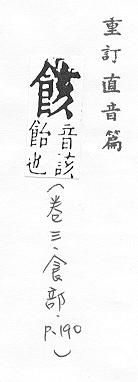 重訂直音篇
䬵
音該
飴也
(卷三·食部·P.190)